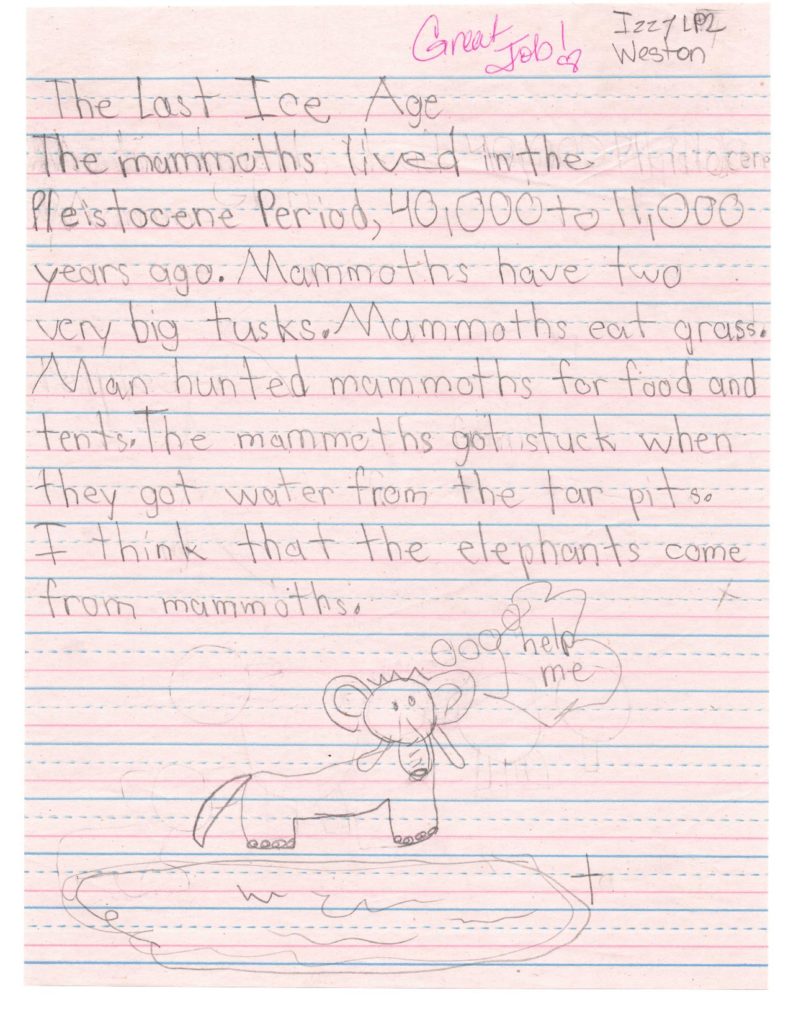 Great Job!
Izzy LP2
Weston
The Last Ice Age
The mammoths lived in the
Pleistocene Period, 40,000 to 11,000
years ago. Mammoths have two
very big tusks. Mammoths eat grass.
Man hunted mammoths for food and
tents. The mammoths got stuck when
they got water from the tar pits.
I think that the elephants come
from mammoths.
help
me